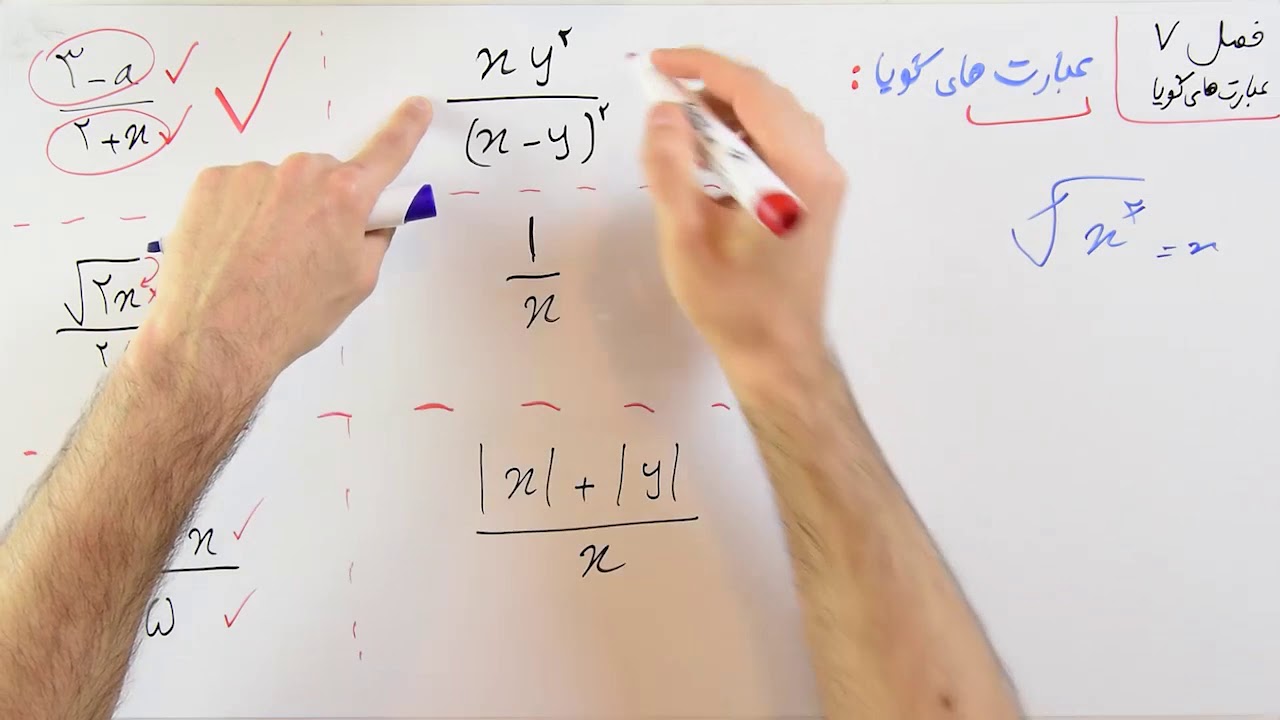 فصل ۷
عبارت های گویا
عبارت های گویا :
√x² = x
(۳-a)/(۲+x)
xy²/(x-y)²
√۲x
۲
1/x
x
۵
(|x|+|y|)/x